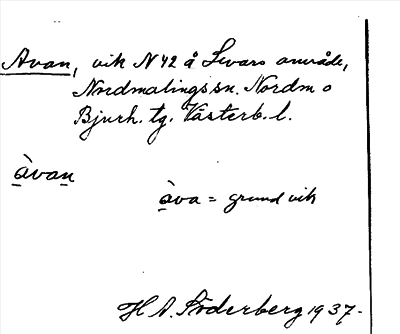 Avan, vik N 42 å Levars område,
Nordmalings sn. Nordm o
Bjurh. tg. Västerb. l.
àvan
àva = grund vik
H A. Söderberg 1937.